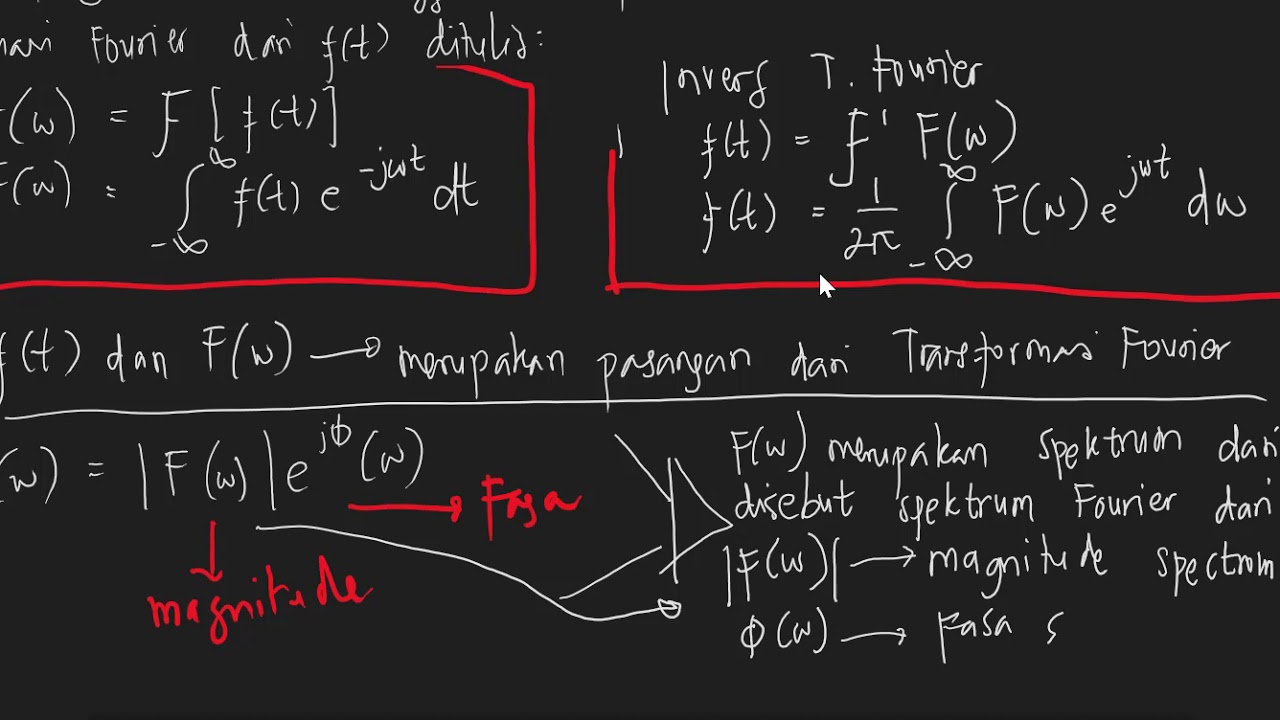 masi Fourier dari f(t) ditulis:
F(ω) = F [f(t)]
F(ω) = ∫_{-∞}^{∞} f(t) e^{-jωt} dt
Invers T. Fourier
f(t) = F^{-1} F(ω)
f(t) = 1/2π ∫_{-∞}^{∞} F(ω) e^{jωt} dω
f(t) dan F(ω) → merupakan pasangan dari Transformasi Fourier
(ω) = |F(ω)| e^{jϕ}(ω)
→ Fasa
↓
magnitude
F(ω) merupakan spektrum dari
disebut spektrum Fourier dari
|F(ω)| → magnitude spectrum
ϕ(ω) → Fasa s